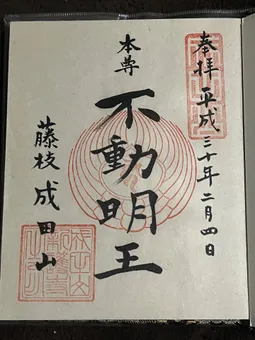 奉拝 平成三十年二月四日
本尊
不動明王
藤枝成田山